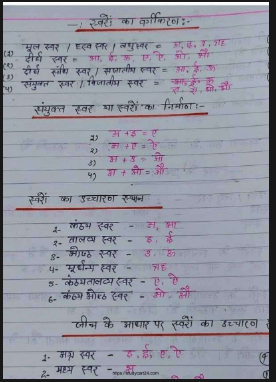 —: स्वरों का वर्गीकरण :-
मूल स्वर / ह्रस्व स्वर / लघुस्वर = अ, इ, उ, ऋ
(2) दीर्घ स्वर = आ, ई, ऊ, ए, ऐ, ओ, औ
दीर्घ संधि स्वर / सजातीय स्वर = आ, ई, ऊ
संयुक्त स्वर / विजातीय स्वर = ए, ऐ, ओ, औ
संयुक्त स्वर या स्वरों का निर्माण :-
1) अ + इ = ए
2) अ + ए = ऐ
3) अ + उ = ओ
4) अ + ओ = औ
स्वरों का उच्चारण स्थान
1- कंठ्य स्वर - अ, आ
2- तालव्य स्वर - इ, ई
3- ओष्ठ्य स्वर - उ, ऊ
4- मूर्धन्य स्वर - ऋ
5- कंठ्यतालव्य स्वर - ए, ऐ
6- कंठ्य ओष्ठ्य स्वर - ओ, औ
जीभ के आधार पर स्वरों का उच्चारण
1- अग्र स्वर - इ, ई, ए, ऐ
2- मध्य स्वर - अ